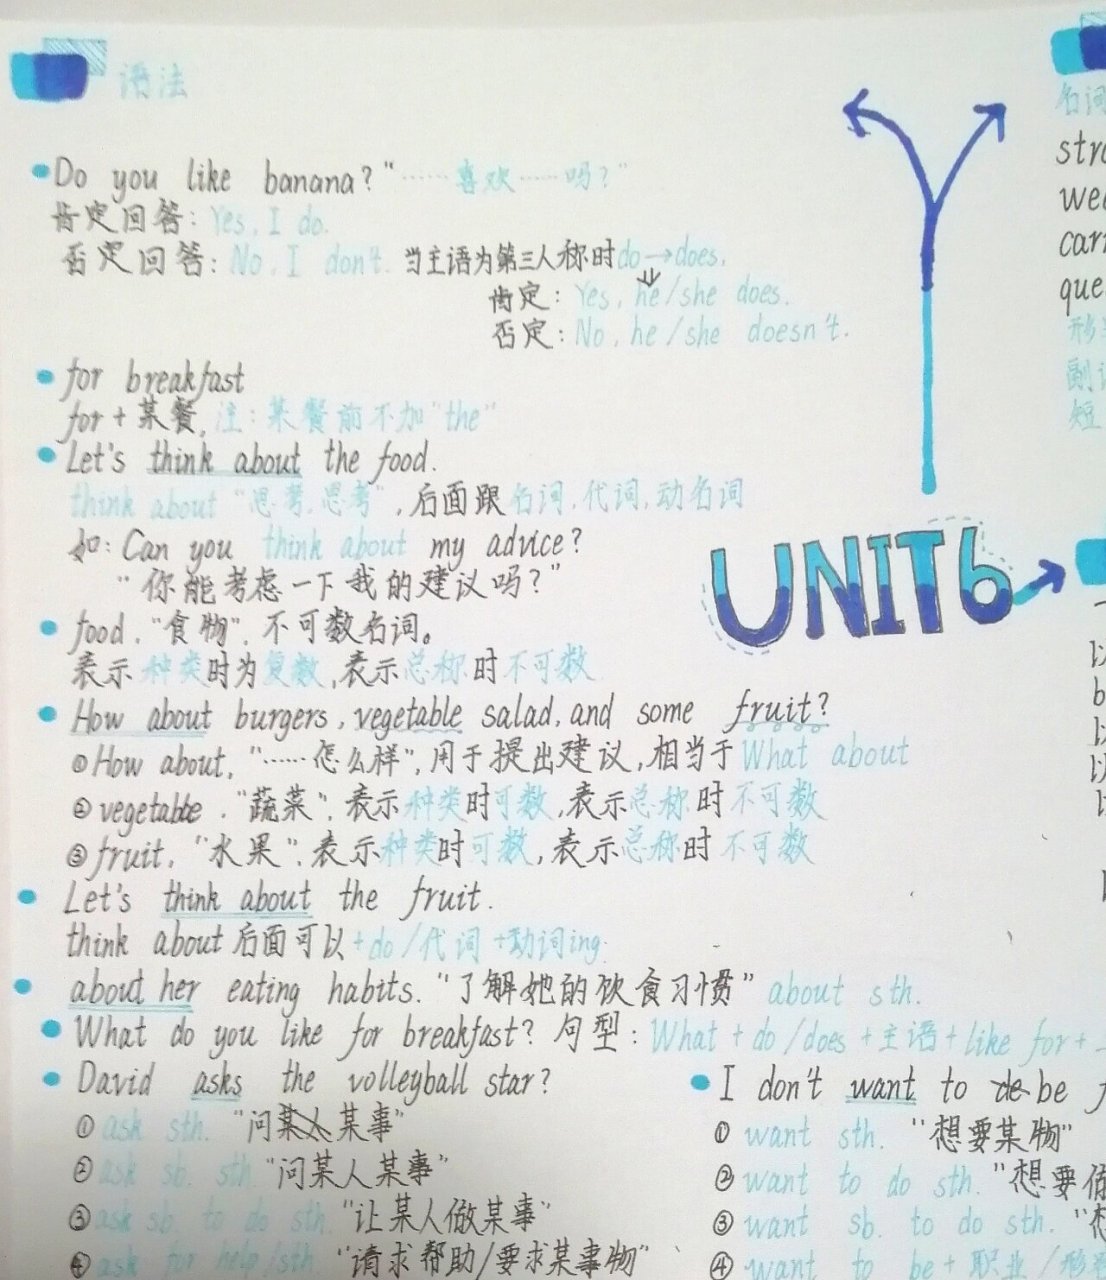 语法
Do you like banana? “……喜欢……吗？”
肯定回答: Yes, I do.
否定回答: No, I don't. 当主语为第三人称时do→does.
肯定: Yes, he/she does.
否定: No, he/she doesn't.
for breakfast
for + 某餐, 注: 某餐前不加“the”
Let's think about the food.
think about “思考, 思考”, 后面跟名词, 代词, 动名词
如: Can you think about my advice?
“你能考虑一下我的建议吗?”
food. “食物”. 不可数名词。
表示种类时为复数, 表示总称时不可数
How about burgers, vegetable salad, and some fruit?
①How about, “……怎么样”, 用于提出建议, 相当于What about
②vegetable. “蔬菜”. 表示种类时可数, 表示总称时不可数
③fruit. “水果”. 表示种类时可数, 表示总称时不可数
Let's think about the fruit.
think about后面可以+do/代词+动词ing.
about her eating habits. “了解她的饮食习惯” about sth.
What do you like for breakfast? 句型: What + do/does + 主语 + like for +
David asks the volleyball star?
①ask sth. “问某事”
②ask sb. sth “问某人某事”
③ask sb. to do sth. “让某人做某事”
④ask for help/sth “请求帮助/要求某事物”
UNIT6
I don't want to be
①want sth. “想要某物”
②want to do sth. “想要做
③want sb. to do sth. “想
④want to be + 职业/形
名词
stra
wea
carr
que
形
副词
短